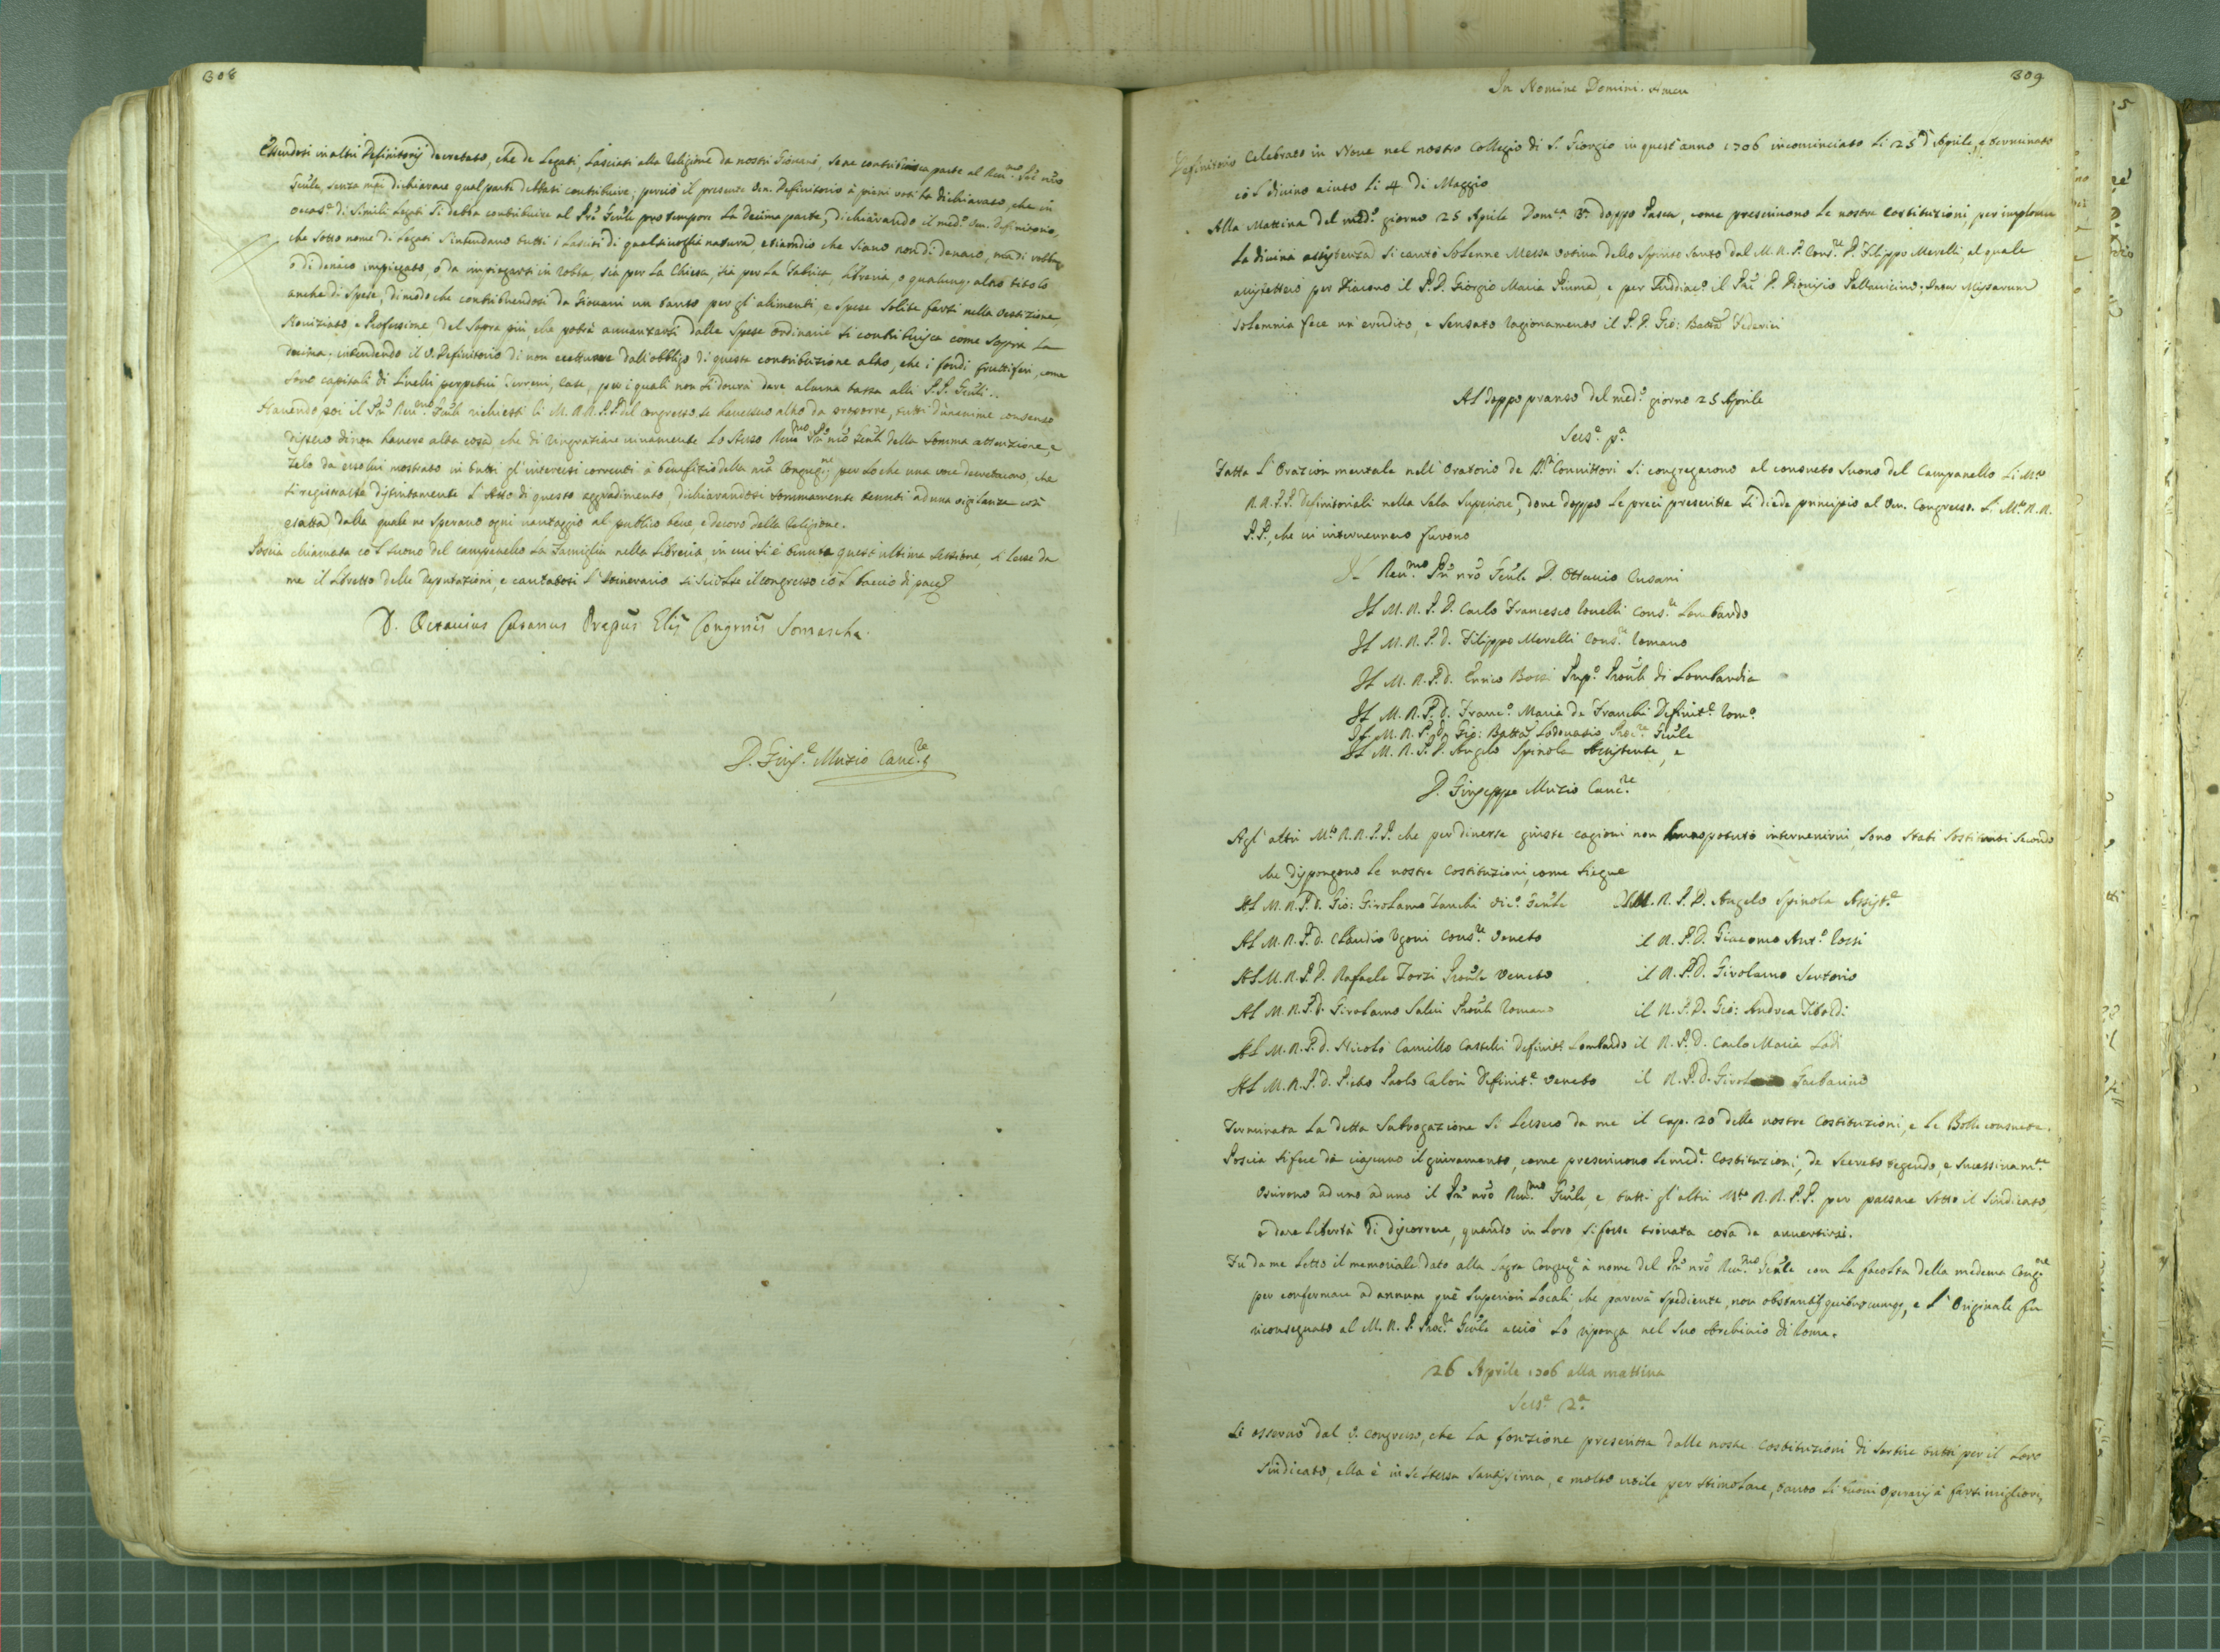 308
Essendosi in altri Definitorij decretato, che de Legati, Lasciati alla Religione da nostri Giovani, se ne contribuisca parte al Ren.mo P̃re nr̃o
Gñle, senza mai dichiarare qual parte debbasi contribuire; perciò il presente Ven. Definitorio à pieni voti ha dichiarato, che in
occas.e di simili Legati si debba contribuire al Pre Gñle pro tempore La decima parte, dichiarando il med.o Ven. Definitorio,
che sotto nome di Legati s'intendano tutti i Lasciti di qualsivoglia natura, etiamdio che siano non di denaro, mà di robba,
o di denaro impiegato, o da impiegarsi in robba, sia per La Chiesa, sia per La Fabrica, Libreria, o qualunq. altro titolo
anche di spese, di modo che contribuendosi da Giovani un tanto per gl'alimenti, e spese solite farsi nella vestizione,
Noviziato e Professione del sopra più, che potrà avvanzarsi dalle spese ordinarie si contribuisca come sopra La
decima. intendendo il V. Definitorio di non eccettuare dall'obbligo di questa contribuzione altro, che i fondi fruttiferi, come
sono capitali di Livelli perpetui Terreni, Case, per i quali non si dourà dare alcuna tassa alli P.P. Gñli..
Havendo poi il P̃re Ren.mo Gñle richiesti li M.R.R.P.P. del Congresso se havessero altro da proporre, tutti d'unanime consenso
dissero di non havere altra cosa, che di ringratiare vivamente Lo stesso Ren.mo P̃re nr̃o Gñle della somma attenzione, e
zelo da esso lui mostrato in tutti gl'interessi correnti à benefizio della nr̃a Congreg.ne, per Lo che una voce decretarono, che
si registrasse distintamente L'Atto di questo aggradimento, dichiarandosi sommamente tenuti ad una vigilanza così
esatta dalla quale ne sperano ogni vantaggio al publico bene, e decoro della Religione.
Poscia chiamata co L suono del campanello La Famiglia nella Libreria, in cui si è tenuta quest'ultima sessione, si Lesse da
me il Libretto delle Deputazioni, e cantatosi L'Itinerario si sciolse il congresso cõ L baccio di pace
D. Octavius Cusanus Prepus Glis Congrñis Somaschæ.
D. Gius.e Muzio Canc.re
309
In Nomine Domini. Amen
Definitorio Celebrato in Nove nel nostro Collegio di S. Giorgio in quest'anno 1706 incominciato Li 25 d'Aprile, e terminato
cõ L divino aiuto Li 4 di Maggio
Alla Mattina del med.o giorno 25 Aprile Dom.ca 3.a doppo Pasca, come prescrivono Le nostre Costituzioni, per implorare
La divina assistenza si cantò Solenne Messa votiva dello Spirito Santo dal M.R.P. Cons.re D. Filippo Merelli, al quale
assistettero per Diacono il P.D. Giorgio Maria Piuma, e per Suddiac.o il P̃re D. Dionisio Pallavicino; Inter Missarum
solemnia fece un'erudito, e sensato ragionamento il P.D. Gio: Batta Federici
Al doppo pranso del med.o giorno 25 Aprile
Sess.e p.a
Fatta L'Orazion mentale nell'Oratorio de SS.ri Convittori si congregarono al consueto suono del Campanello Li M.to
R.R.P.P. Definitoriali nella Sala Superiore, dove doppo Le preci prescritte si diede principio al Ven. Congresso. Li M.to R.R.
P.P., che vi intervennero furono
Il Ren.mo P̃re nr̃o Gñle D. Ottavio Cusani
Il M.R.P.D. Carlo Francesco Covelli Cons.re Lombardo
Il M.R.P.D. Filippo Merelli Cons.re Romano
Il M.R.P.D. Enrico Bossi Prep.o Proule di Lombardia
Il M.R.P.D. Franc.o Maria de Franchi Definit.e Rom.o
Il M.R.P.D. Gio: Batta Lodovasio Proc.re Gñle
Il M.R.P.D. Angelo Spinola Assistente, e
D. Giuseppe Muzio Canc.re
Agl'altri M.to R.R.P.P. che per diverse giuste cagioni non hanno potuto intervenirvi, sono stati sostituiti secondo
che dispongono Le nostre Costituzioni, come siegue
Al M.R.P.D. Gio: Girolamo Zanchi Vic.o Gñle Il M.R.P.D. Angelo Spinola Assist.e
Al M.R.P.D. Claudio Ugoni Cons.re Veneto il R.P.D. Giacomo Ant.o Rossi
Al M.R.P.D. Rafaele Zorzi Prouле Veneto il R.P.D. Girolamo Sertorio
Al M.R.P.D. Girolamo Salvi Proule Romano il R.P.D. Gio: Andrea Tiboldi
Al M.R.P.D. Nicolò Camillo Castelli Definit.e Lombardo il R.P.D. Carlo Maria Lodi
Al M.R.P.D. Pietro Paolo Caloni Definit.e Veneto il R.P.D. Garbarino
Terminata La detta Subrogazione si Lessero da me il Cap. 20 delle nostre Costituzioni, e Le Bolle consuete.
Poscia si fece da ciascuno il giuramento, come prescrivono Le med.e Costituzioni, de Secreto tegendo, e successivam.te
Uscirono ad uno ad uno il P̃re nr̃o Ren.mo Gñle, e tutti gl'altri M.to R.R.P.P. per passare sotto il Sindicato,
e dare Libertà di discorrere, quando in Loro si fosse trovata cosa da avvertirsi.
Fu da me Letto il memoriale dato alla Sagra Congreg.e à nome del P̃re nr̃o Ren.mo Gñle con La facoltà della medema Cong.ne
per confermare ad annum que' Superiori Locali che parerà spediente, non obstantib. quibuscumq., e L'Originale fu
riconsegnato al M.R.P. Proc.re Gñle acciò Lo riponga nel suo Archivio di Roma.
26 Aprile 1706 alla mattina
Sess.e 2.a
Si osservò dal V. Congresso, che La fonzione prescritta dalle nostre Costituzioni di sortire tutti per il Loro
Sindicato, ella è in se stessa Santissima, e molto utile per stimolare, tanto Li buoni operarij à farsi migliori,